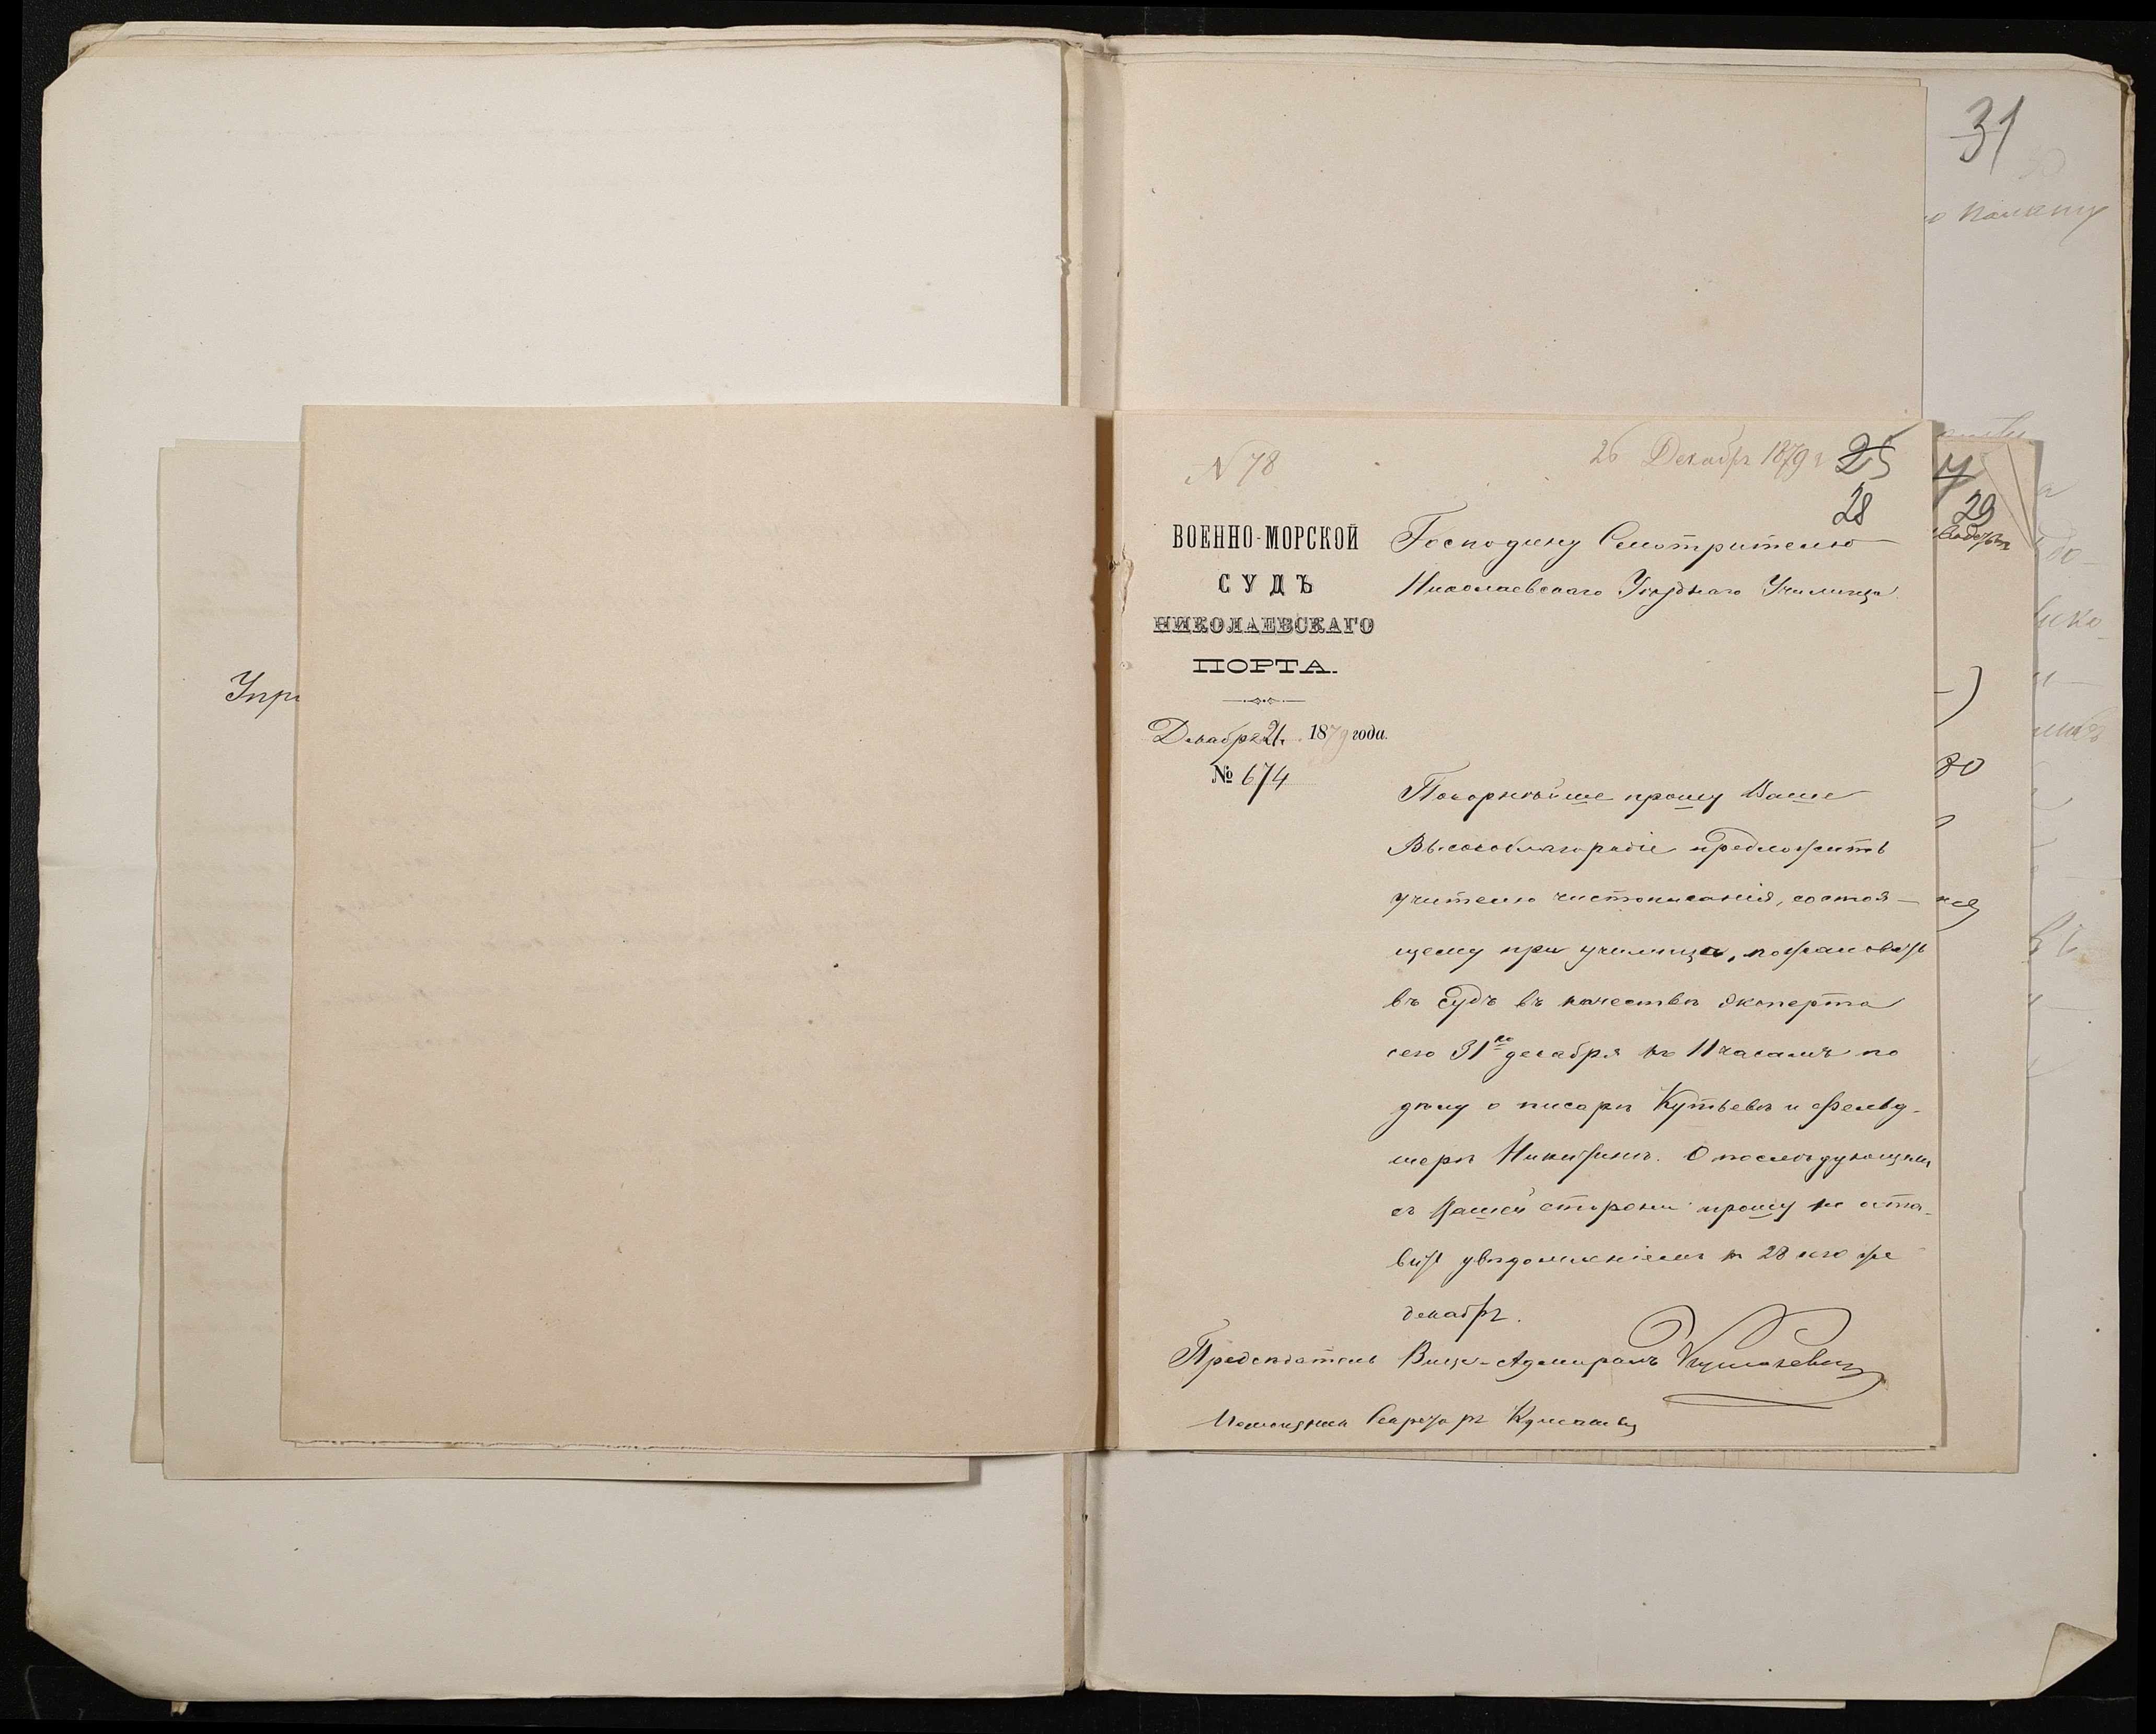 31
30
N 78
26 Декабр 1879 г
25
28
29
ВОЕННО-МОРСКОЙ
СУДЪ
НИКОЛАЕВСКАГО
ПОРТА.
Декабря 21 1879 года.
№ 674
Господину Смотрителю
Николаевскаго Уѣзднаго Училища.
Покорнѣйше прошу Ваше
Высокоблагородіе предложить
учителю чистописанія, состоя-
щему при училищѣ, пожаловать
въ Судъ въ качествѣ эксперта
сего 31го декабря къ 11 часамъ по
дѣлу о писарѣ Кутьевѣ и фельд-
шерѣ Никитинѣ. О послѣдующемъ
съ Вашей стороны прошу не оста-
вить увѣдомленіемъ къ 28 же
декабр.
Предсѣдатель Вице-Адмиралъ
Секретарь
Упр